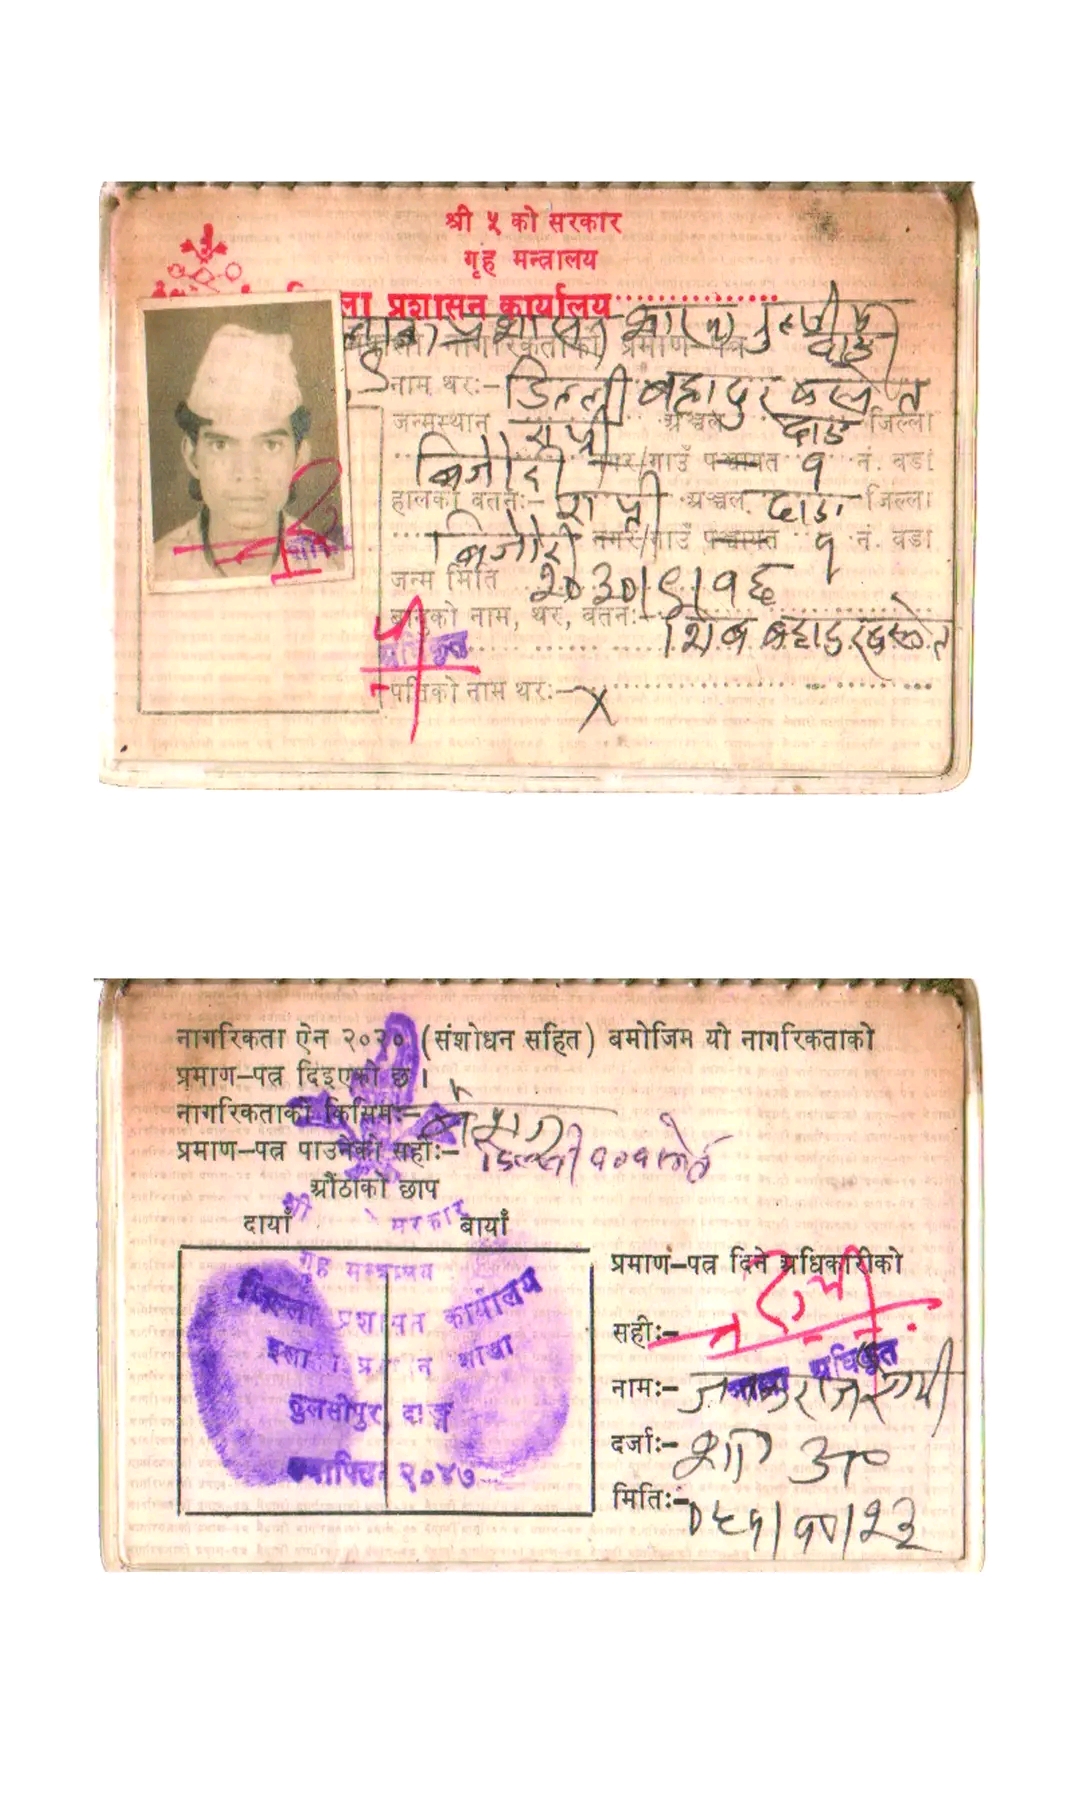 श्री ५ को सरकार
गृह मन्त्रालय
ला प्रशासन कार्यालय
प्रशासन
नागरिकताको प्रमाण-पत्र
नाम थर:- डिल्ली बहादुर
जन्मस्थान राप्ती अञ्चल दाङ जिल्ला
बिजौरी नगर/गाउँ पञ्चायत १ नं. वडा
हालको वतन:- राप्ती अञ्चल दाङ जिल्ला
बिजौरी नगर/गाउँ पञ्चायत १ नं. वडा
जन्म मिति २०३०।९।१६
बाबुको नाम, थर, वतन:-
पतिको नाम थर:- X
नागरिकता ऐन २०२० (संशोधन सहित) बमोजिम यो नागरिकताको
प्रमाण-पत्र दिइएको छ ।
नागरिकताको किसिम:- वंशज
प्रमाण-पत्र पाउनेको सही:-
औंठाको छाप
दायाँ बायाँ
श्री सरकार
गृह मन्त्रालय
जिल्ला प्रशासन कार्यालय
इलाका प्रशासन शाखा
तुलसीपुर, दाङ्ग
स्थापित २०४७
प्रमाण-पत्र दिने अधिकारीको
सही:-
शाखा अधिकृत
नाम:-
दर्जा:- शा० अ०
मिति:- ०५९।१०।२३